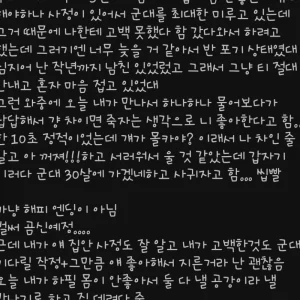 해야하나 사정이 있어서 군대를 최대한 미루고 있는데
그거 때문에 나한테 고백 못했다 함 갔다와서 하려고
했는데 그러기엔 너무 늦을 거 같아서 반 포기 상태였대
심지어 난 작년까지 남친 있었었고 그래서 그냥 티 절대
안내고 혼자 마음 접고 있었대
그런 와중에 오늘 내가 만나서 하나하나 물어보다가
답답해서 걍 차이면 죽자는 생각으로 니 좋아한다고 함..
한 10초 정적이었는데 얘가 몰카야? 이래서 나 차인 줄
알고 아 꺼져!!!하고 서러워서 울 것 같았는데 갑자기
이러다 군대 30살에 가겠네하고 사귀자고 함,,, 씹빨
마냥 해피 엔딩이 아님
벌써 곰신예정,,,,
근데 내가 얘 집안 사정도 잘 알고 내가 고백한것도 군대
기다릴 작정+그만큼 얘 좋아해서 지른거라 난 괜찮음
오늘 내가 하필 몸이 안좋아서 둘 다 낼 공강이라 낼
만나기로 하고 집 데려다 줌